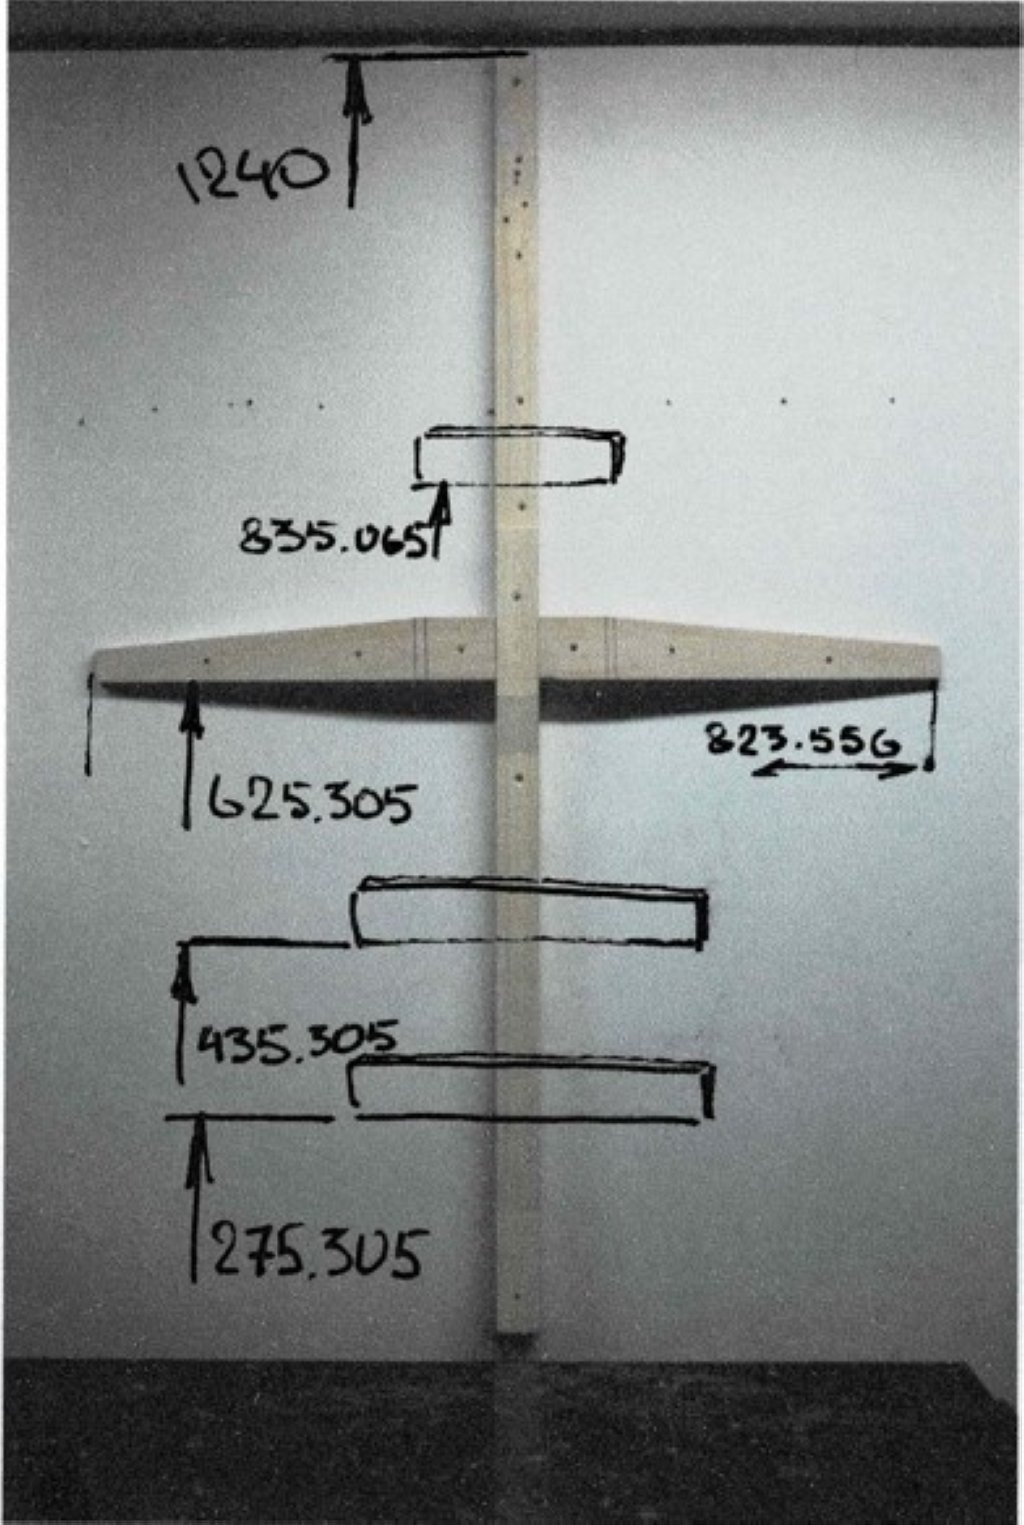 1240
835.065
823.556
625.305
435.305
275.305